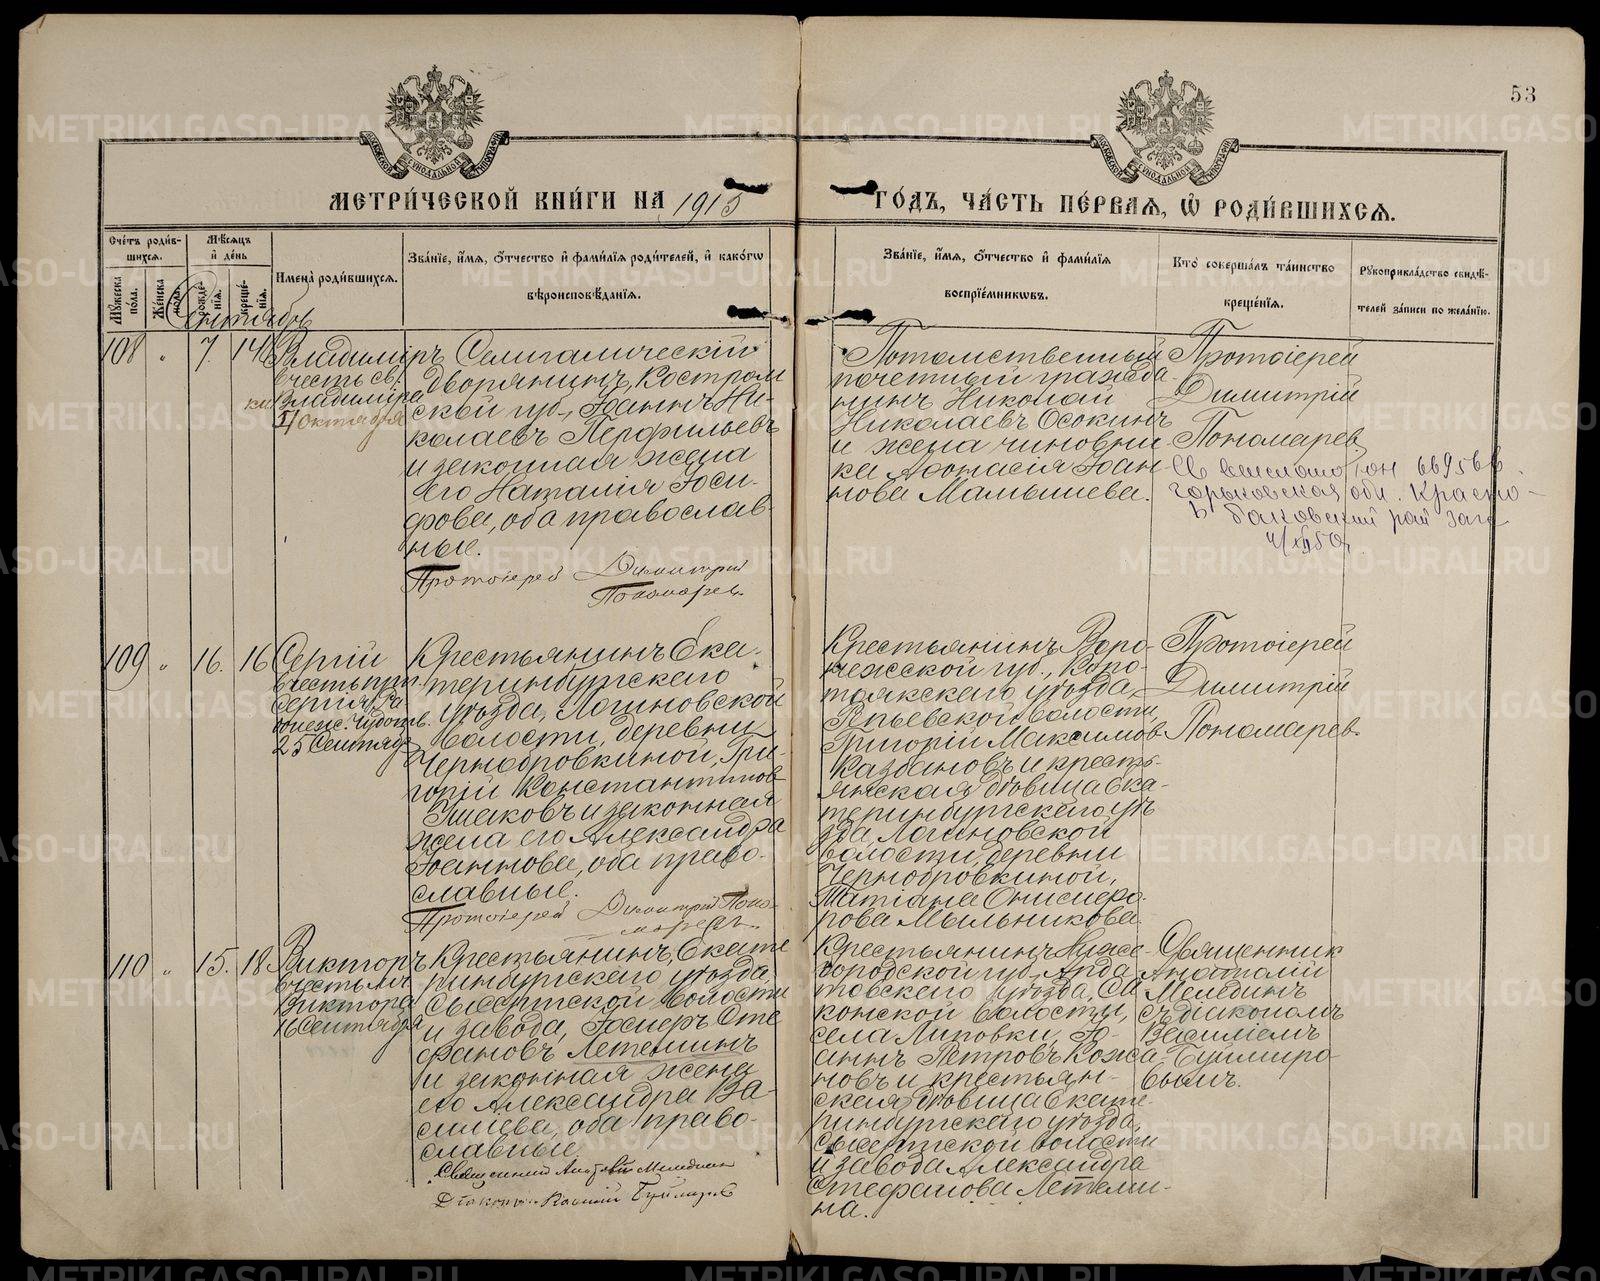 53
МОСКОВСКОЙ СУНОДАЛЬНОЙ ТИПОГРАФІИ
МОСКОВСКОЙ СУНОДАЛЬНОЙ ТИПОГРАФІИ
МЕТРИ́ЧЕСКОЙ КНИ́ГИ НА 1915
ГО́ДЪ, ЧА́СТЬ ПЕ́РВАЯ, Ѡ РОДИ́ВШИХСЯ.
Сче́тъ роди́в-
шихся.
Му́жеска по́ла.
Же́нска по́ла.
Мѣ́сяцъ
и́ де́нь
рожде́-
нїя.
креще́-
нїя.
Имена̀ роди́вшихся.
Зва́нїе, и́мя, ѻ́тчество и́ фами́лїя роди́телей, и́ како́гѡ
вѣроисповѣ́данїя.
Зва́нїе, и́мя, ѻ́тчество и́ фами́лїя
воспрїе́мниковъ.
Кто̀ соверша́лъ та́инство
креще́нїя.
Рꙋкоприкла́дство свидѣ́-
телей за́писи по жела́нїю.
Сентябрь
108
"
7.
14
Владиміръ
въ честь св.
кн. Владиміра
4/ октября
Семигалическій
дворянинъ, Костром
ской губ., Іоаннъ Ни-
колаевъ Перфильевъ
и законная жена
его Наталія Іоси-
фова, оба православ-
ные.
Протоіерей Димитрій
Пономаревъ
Потомственный
почетный гражда-
нинъ Николай
Николаевъ Осокинъ
и жена чиновни-
ка Афанасія Іоан-
нова Мамышева.
Протоіерей
Димитрій
Пономаревъ
горьковская обл. Красно-
баковский рай загс
109
"
16.
16
Сергій
въ честь преп.
Сергія Ра-
донеж. Чудотв.
25 Сентября
Крестьянинъ Ека-
теринбургскаго
уѣзда, Логиновской
волости, деревни
Чернобровкиной, Гри-
горій Константинов
Ушаковъ и законная
жена его Александра
Іоаннова, оба право-
славные.
Протоіерей Димитрій Поно-
маревъ.
Крестьянинъ Воро-
нежской губ., Коро-
тоякскаго уѣзда,
Репьевской волости,
Григорій Максимов
Казбановъ и кресть-
янская дѣвица Ека-
теринбургскаго уѣ-
зда Логиновской
волости, деревни
Чернобровкиной,
Татіана Онисифо-
рова Мыльникова
Протоіерей
Димитрій
Пономаревъ
110
"
15.
18
Викторъ
въ честь мч.
Виктора
16 Сентября
Крестьянинъ, Екате
ринбургскаго уѣзда
Сысертской волости
и завода, Іосифъ Сте
фановъ Летеминъ
и законная жена
его Александра Ва-
силіева, оба право-
славные.
Священникъ Анатолій Мелединъ
Діаконъ Василій Буймировъ
Крестьянинъ Ниже-
городской губ., Арда
товскаго уѣзда, Са
конской волости,
села Липовки, Іо-
аннъ Петровъ Кожа-
новъ и крестьян-
ская дѣвица Екате-
ринбургскаго уѣзда,
Сысертской волости
и завода Александра
Стефанова Летеми-
на.
Священник
Анатолій
Мелединъ
съ діакономъ
Василіемъ
Буймиро-
вымъ.
METRIKI.GASO-URAL.RU